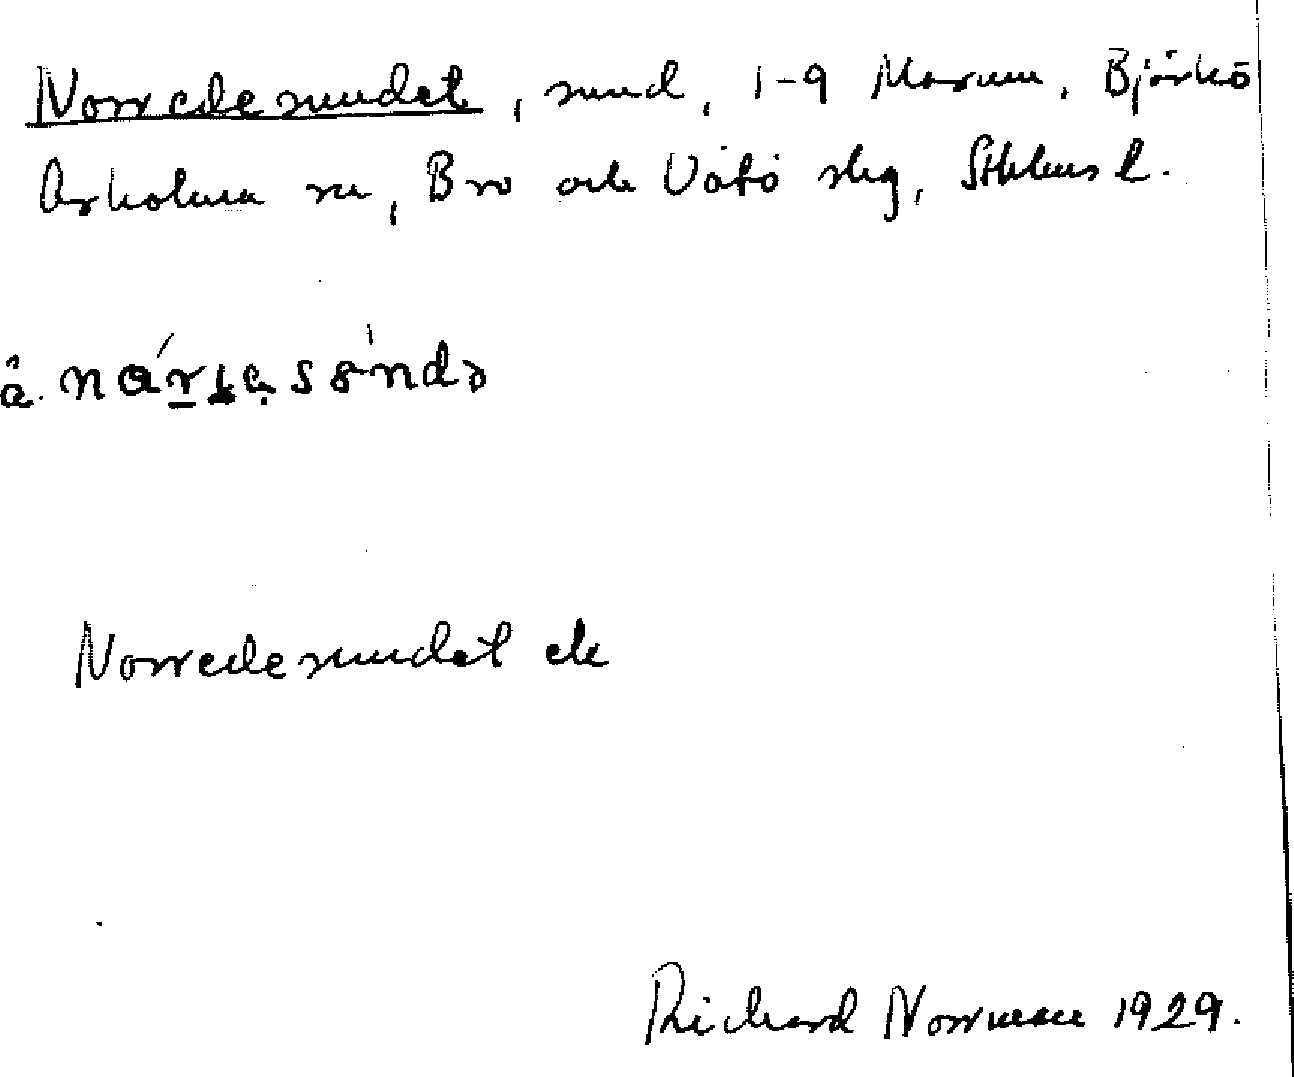 Norredesundet, sund, 1-9 Marum, Björkö
Arholma sn, Bro och Vätö slg, Sthlms l.
Norredesundet ek
Richard Norrman 1929.